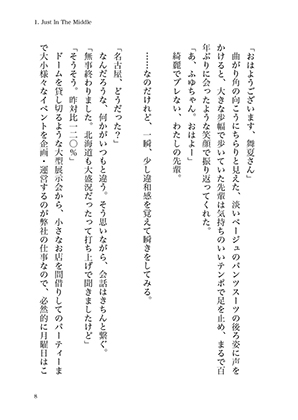 1. Just In The Middle
「おはようございます、舞夏さん」
曲がり角の向こうにちらりと見えた、淡いベージュのパンツスーツの後ろ姿に声を
かけると、大きな歩幅で歩いていた先輩は気持ちのいいテンポで足を止め、まるで百
年ぶりに会ったような笑顔で振り返ってくれた。
「あ、ふゆちゃん。おはよー」
綺麗でブレない、わたしの先輩。
……なのだけれど、一瞬、少し違和感を覚えて瞬きをしてみる。
「名古屋、どうだった?」
なんだろうな、何かがいつもと違う。そう思いながら、会話はきちんと繋ぐ。
「無事終わりました。北海道も大盛況だったって打ち上げで聞きましたけど」
「そうそう。昨対比一二〇%」
ドームを貸し切るような大型展示会から、小さなお店を間借りしてのパーティーま
で大小様々なイベントを企画・運営するのが弊社の仕事なので、必然的に月曜日はこ
8